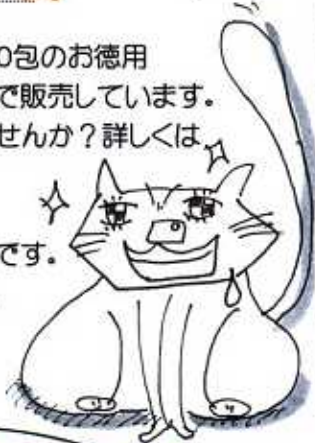 0包のお徳用
で販売しています。
せんか？詳しくは
です。